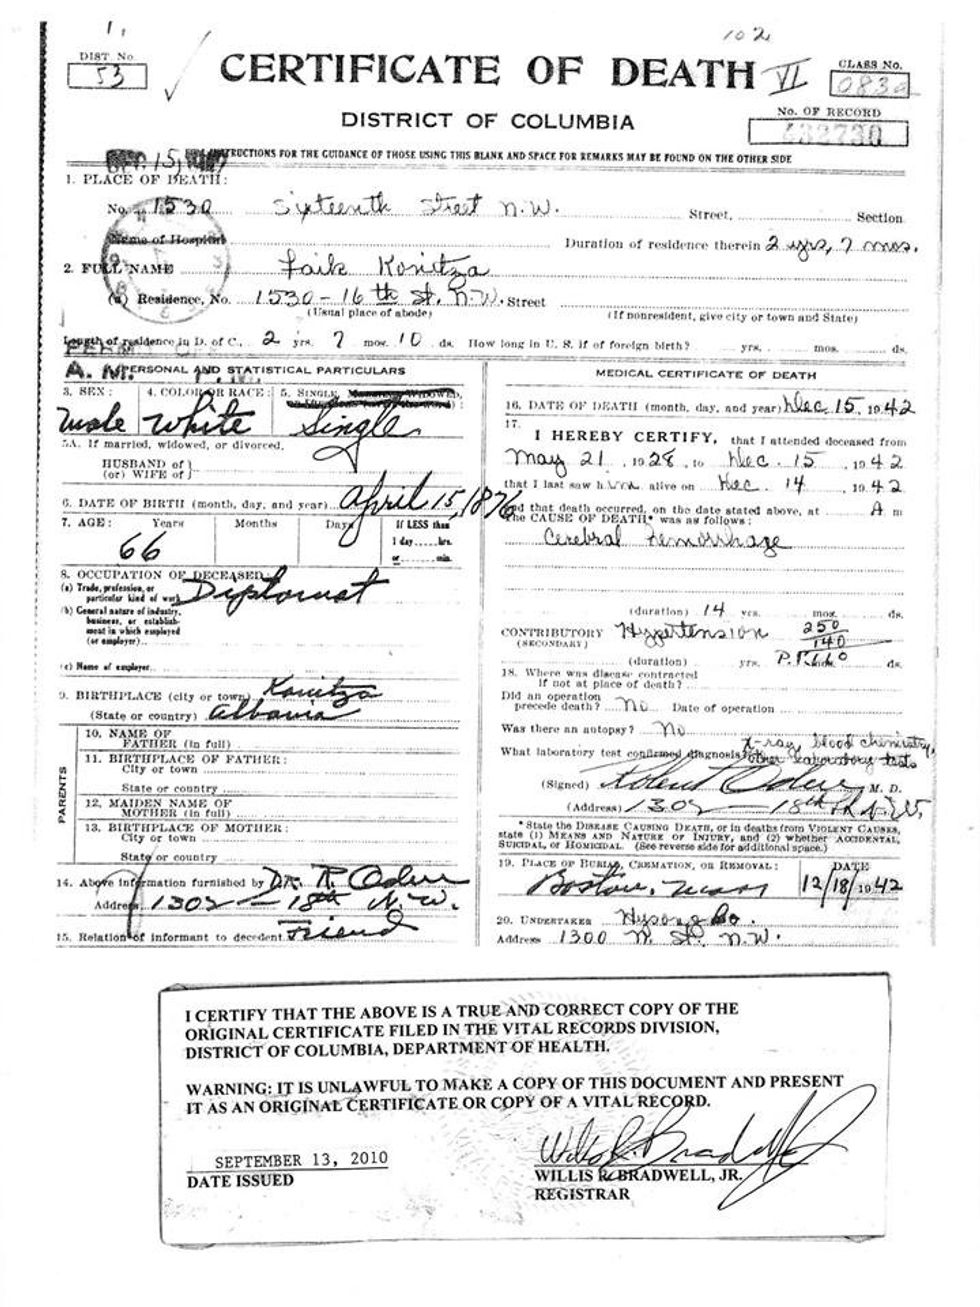 1,
102
DIST No.
53
CERTIFICATE OF DEATH VI
CLASS No.
083a
DISTRICT OF COLUMBIA
No. OF RECORD
432730
INSTRUCTIONS FOR THE GUIDANCE OF THOSE USING THIS BLANK AND SPACE FOR REMARKS MAY BE FOUND ON THE OTHER SIDE
1. PLACE OF DEATH:
No. 1530 Sixteenth Street N.W. Street, Section
Name of Hospital Duration of residence therein 2 yrs, 7 mos.
2. FULL NAME Faik Konitza
(a) Residence, No. 1530 - 16th St. N.W. Street
(Usual place of abode) (If nonresident, give city or town and State)
Length of residence in D. of C., 2 yrs. 7 mos. 10 ds. How long in U. S. if of foreign birth? yrs. mos. ds.
A. M. PERSONAL AND STATISTICAL PARTICULARS
3. SEX: 4. COLOR OR RACE: 5. SINGLE,
male white Single
5A. If married, widowed, or divorced,
HUSBAND of
(or) WIFE of
6. DATE OF BIRTH (month, day, and year) April 15, 1876
7. AGE: Years Months Days If LESS than
66 1 day hrs.
or min.
8. OCCUPATION OF DECEASED Diplomat
(a) Trade, profession, or
particular kind of work
(b) General nature of industry,
business, or establish-
ment in which employed
(or employer)
(c) Name of employer
9. BIRTHPLACE (city or town) Konitza
(State or country) Albania
PARENTS
10. NAME OF
FATHER (in full)
11. BIRTHPLACE OF FATHER:
City or town
State or country
12. MAIDEN NAME OF
MOTHER (in full)
13. BIRTHPLACE OF MOTHER:
City or town
State or country
14. Above information furnished by Dr. R. Oden
Address 1302 - 18th N.W.
15. Relation of informant to decedent Friend
MEDICAL CERTIFICATE OF DEATH
16. DATE OF DEATH (month, day, and year) Dec 15, 1942
17.
I HEREBY CERTIFY, that I attended deceased from
May 21, 1928, to Dec. 15, 1942
that I last saw him alive on Dec. 14, 1942
and that death occurred, on the date stated above, at A m
The CAUSE OF DEATH* was as follows:
Cerebral Hemorrhage
(duration) 14 yrs. mos. ds.
CONTRIBUTORY Hypertension 250/140
(SECONDARY)
(duration) yrs. mos. ds.
18. Where was disease contracted
if not at place of death?
Did an operation
precede death? No Date of operation
Was there an autopsy? No
What laboratory test confirmed diagnosis? X-ray, blood chemistry,
other laboratory tests
(Signed) Robert Oden M. D.
(Address) 1302 - 18th St N.W.
* State the DISEASE CAUSING DEATH, or in deaths from VIOLENT CAUSES,
state (1) MEANS AND NATURE OF INJURY, and (2) whether ACCIDENTAL,
SUICIDAL, or HOMICIDAL. (See reverse side for additional space.)
19. PLACE OF BURIAL, CREMATION, OR REMOVAL: DATE
Boston, Mass 12/18/1942
20. UNDERTAKER Hysong Co.
Address 1300 N. St. N.W.
I CERTIFY THAT THE ABOVE IS A TRUE AND CORRECT COPY OF THE
ORIGINAL CERTIFICATE FILED IN THE VITAL RECORDS DIVISION,
DISTRICT OF COLUMBIA, DEPARTMENT OF HEALTH.
WARNING: IT IS UNLAWFUL TO MAKE A COPY OF THIS DOCUMENT AND PRESENT
IT AS AN ORIGINAL CERTIFICATE OR COPY OF A VITAL RECORD.
SEPTEMBER 13, 2010
DATE ISSUED
WILLIS R. BRADWELL, JR.
REGISTRAR